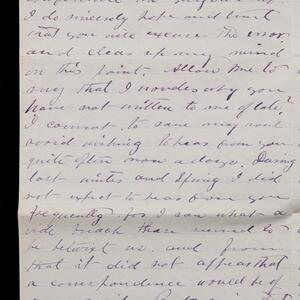 I do sincerely hope and trust
that you will excuse the error
and clear up my mind
on this point. Allow me to
say that I wonder why you
have not written to me of late?
I cannot, to save my soul
avoid wishing to hear from you
quite often now a days. During
last winter and Spring I did
not expect to hear from you
frequently. for I saw what a
wide breach there seemed to
be betwixt us and from
that it did not appear that
a correspondence would be of